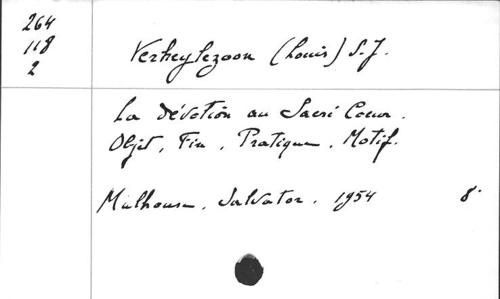 264
118
2
Verheylezoon (Louis) S.J.
La dévotion au Sacré Coeur.
Objet, Fin, Pratique, Motif.
Mulhouse, Salvator, 1954 8°